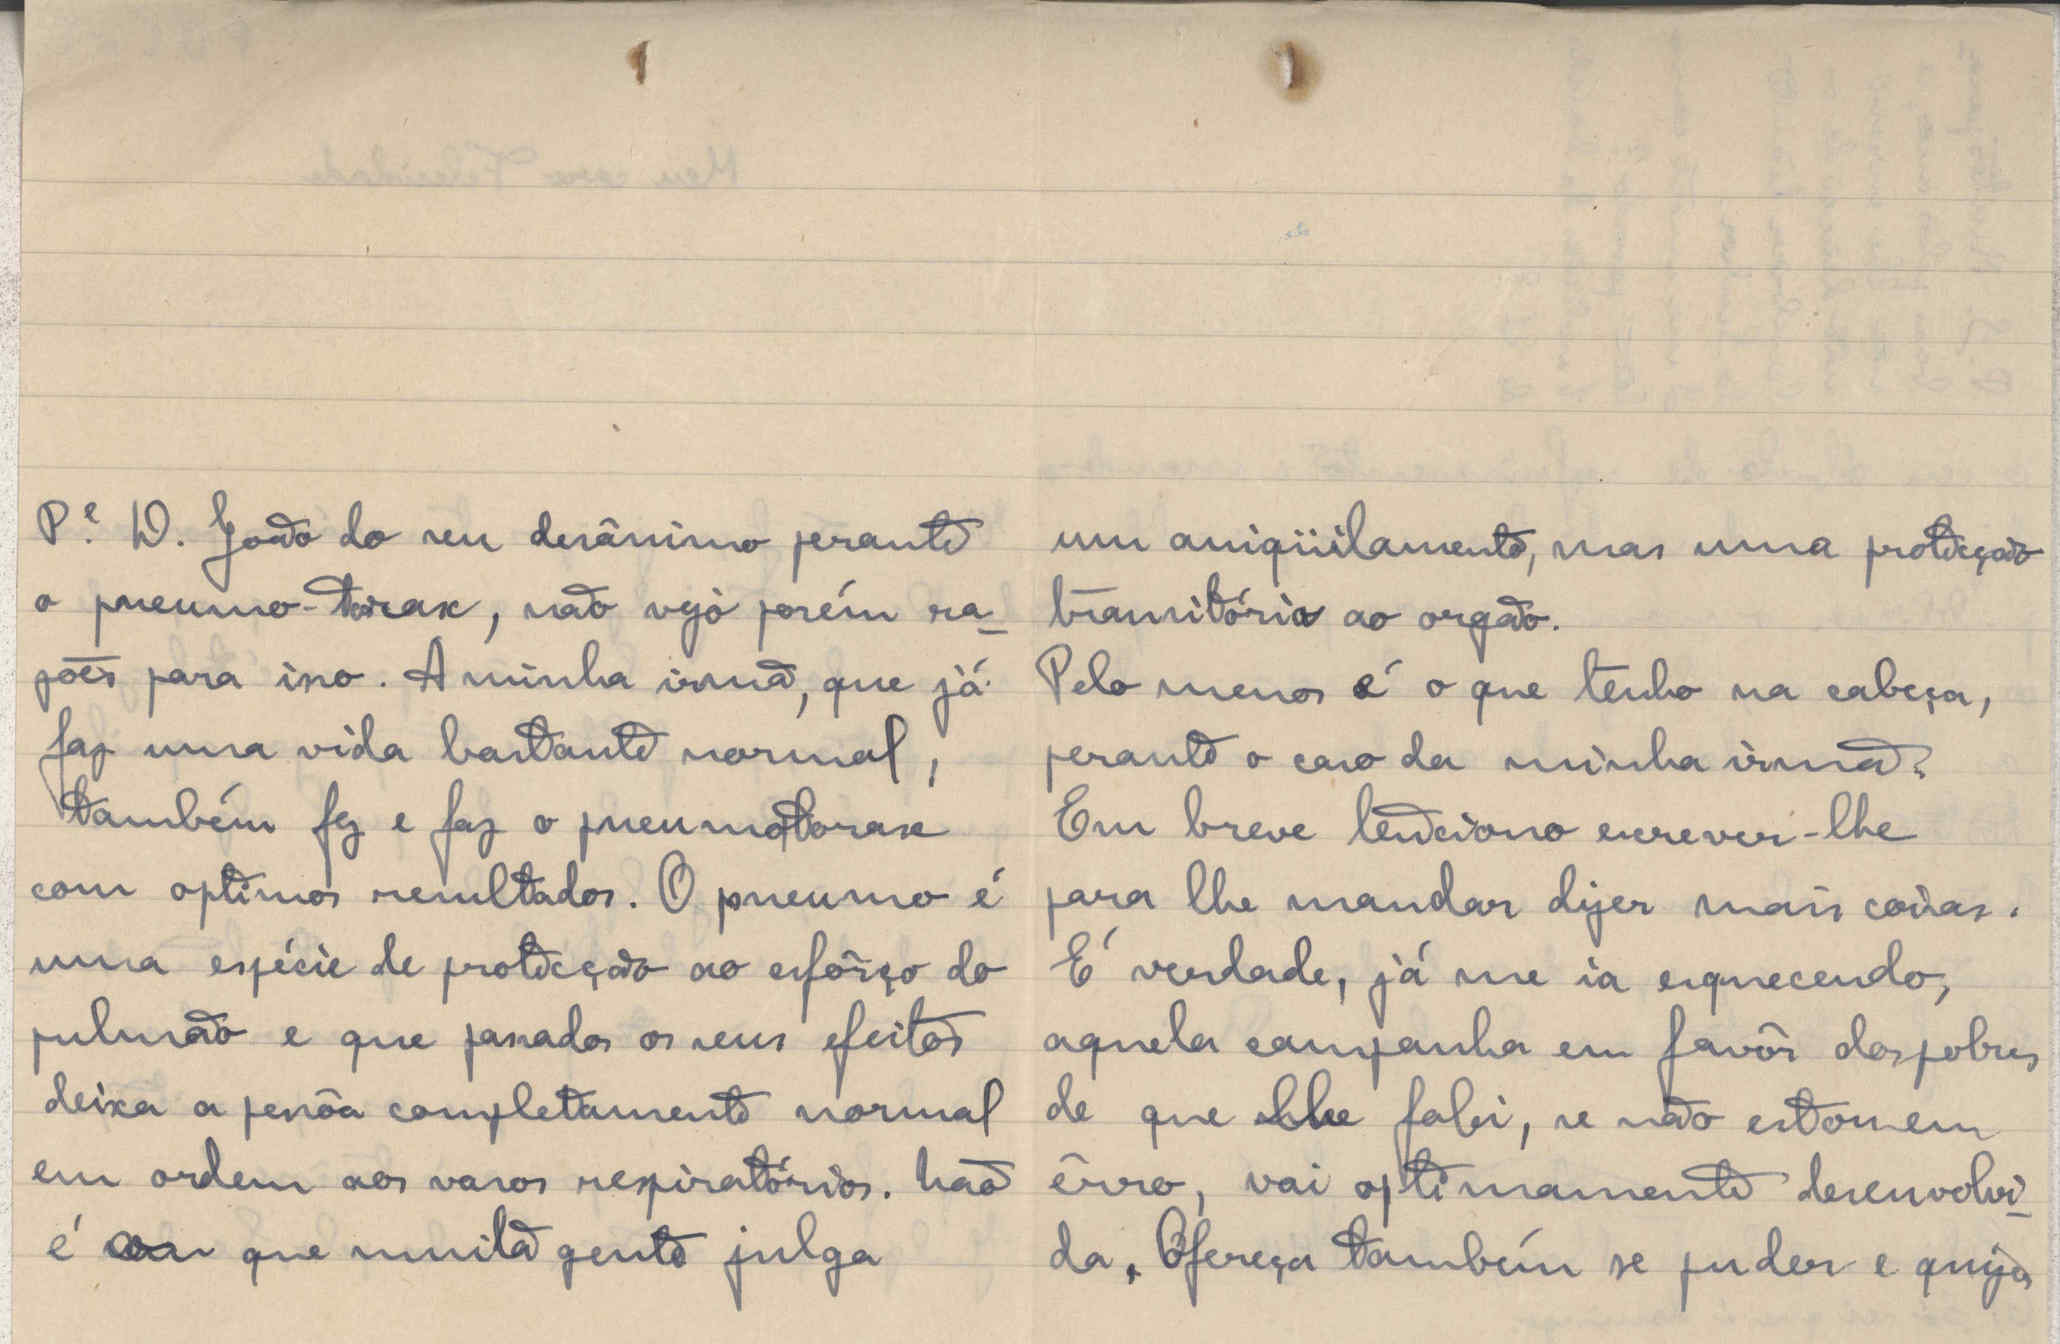 Pe. D. João do seu desânimo perante
o pneumo-torax, não vejo porém ra-
zões para isso. A minha irmã, que já
faz uma vida bastante normal,
também fez e faz o pneumotorax
com optimos resultados. O pneumo é
uma espécie de protecção ao esfôrço do
pulmão e que passados os seus efeitos
deixa a pessôa completamente normal
em ordem aos vasos respiratórios. Não
é que muita gente julga
um aniqüilamento, mas uma protecção
transitória ao orgão.
Pelo menos é o que tenho na cabeça,
perante o caso da minha irmã.
Em breve tenciono escrever-lhe
para lhe mandar dizer mais coisas.
É verdade, já me ia esquecendo,
aquela campanha em favôr dos pobres
de que lhe falei, se não estou em
êrro, vai optimamente desenvolvi-
da. Ofereça também se puder e quizer
Meu caro Felicidade